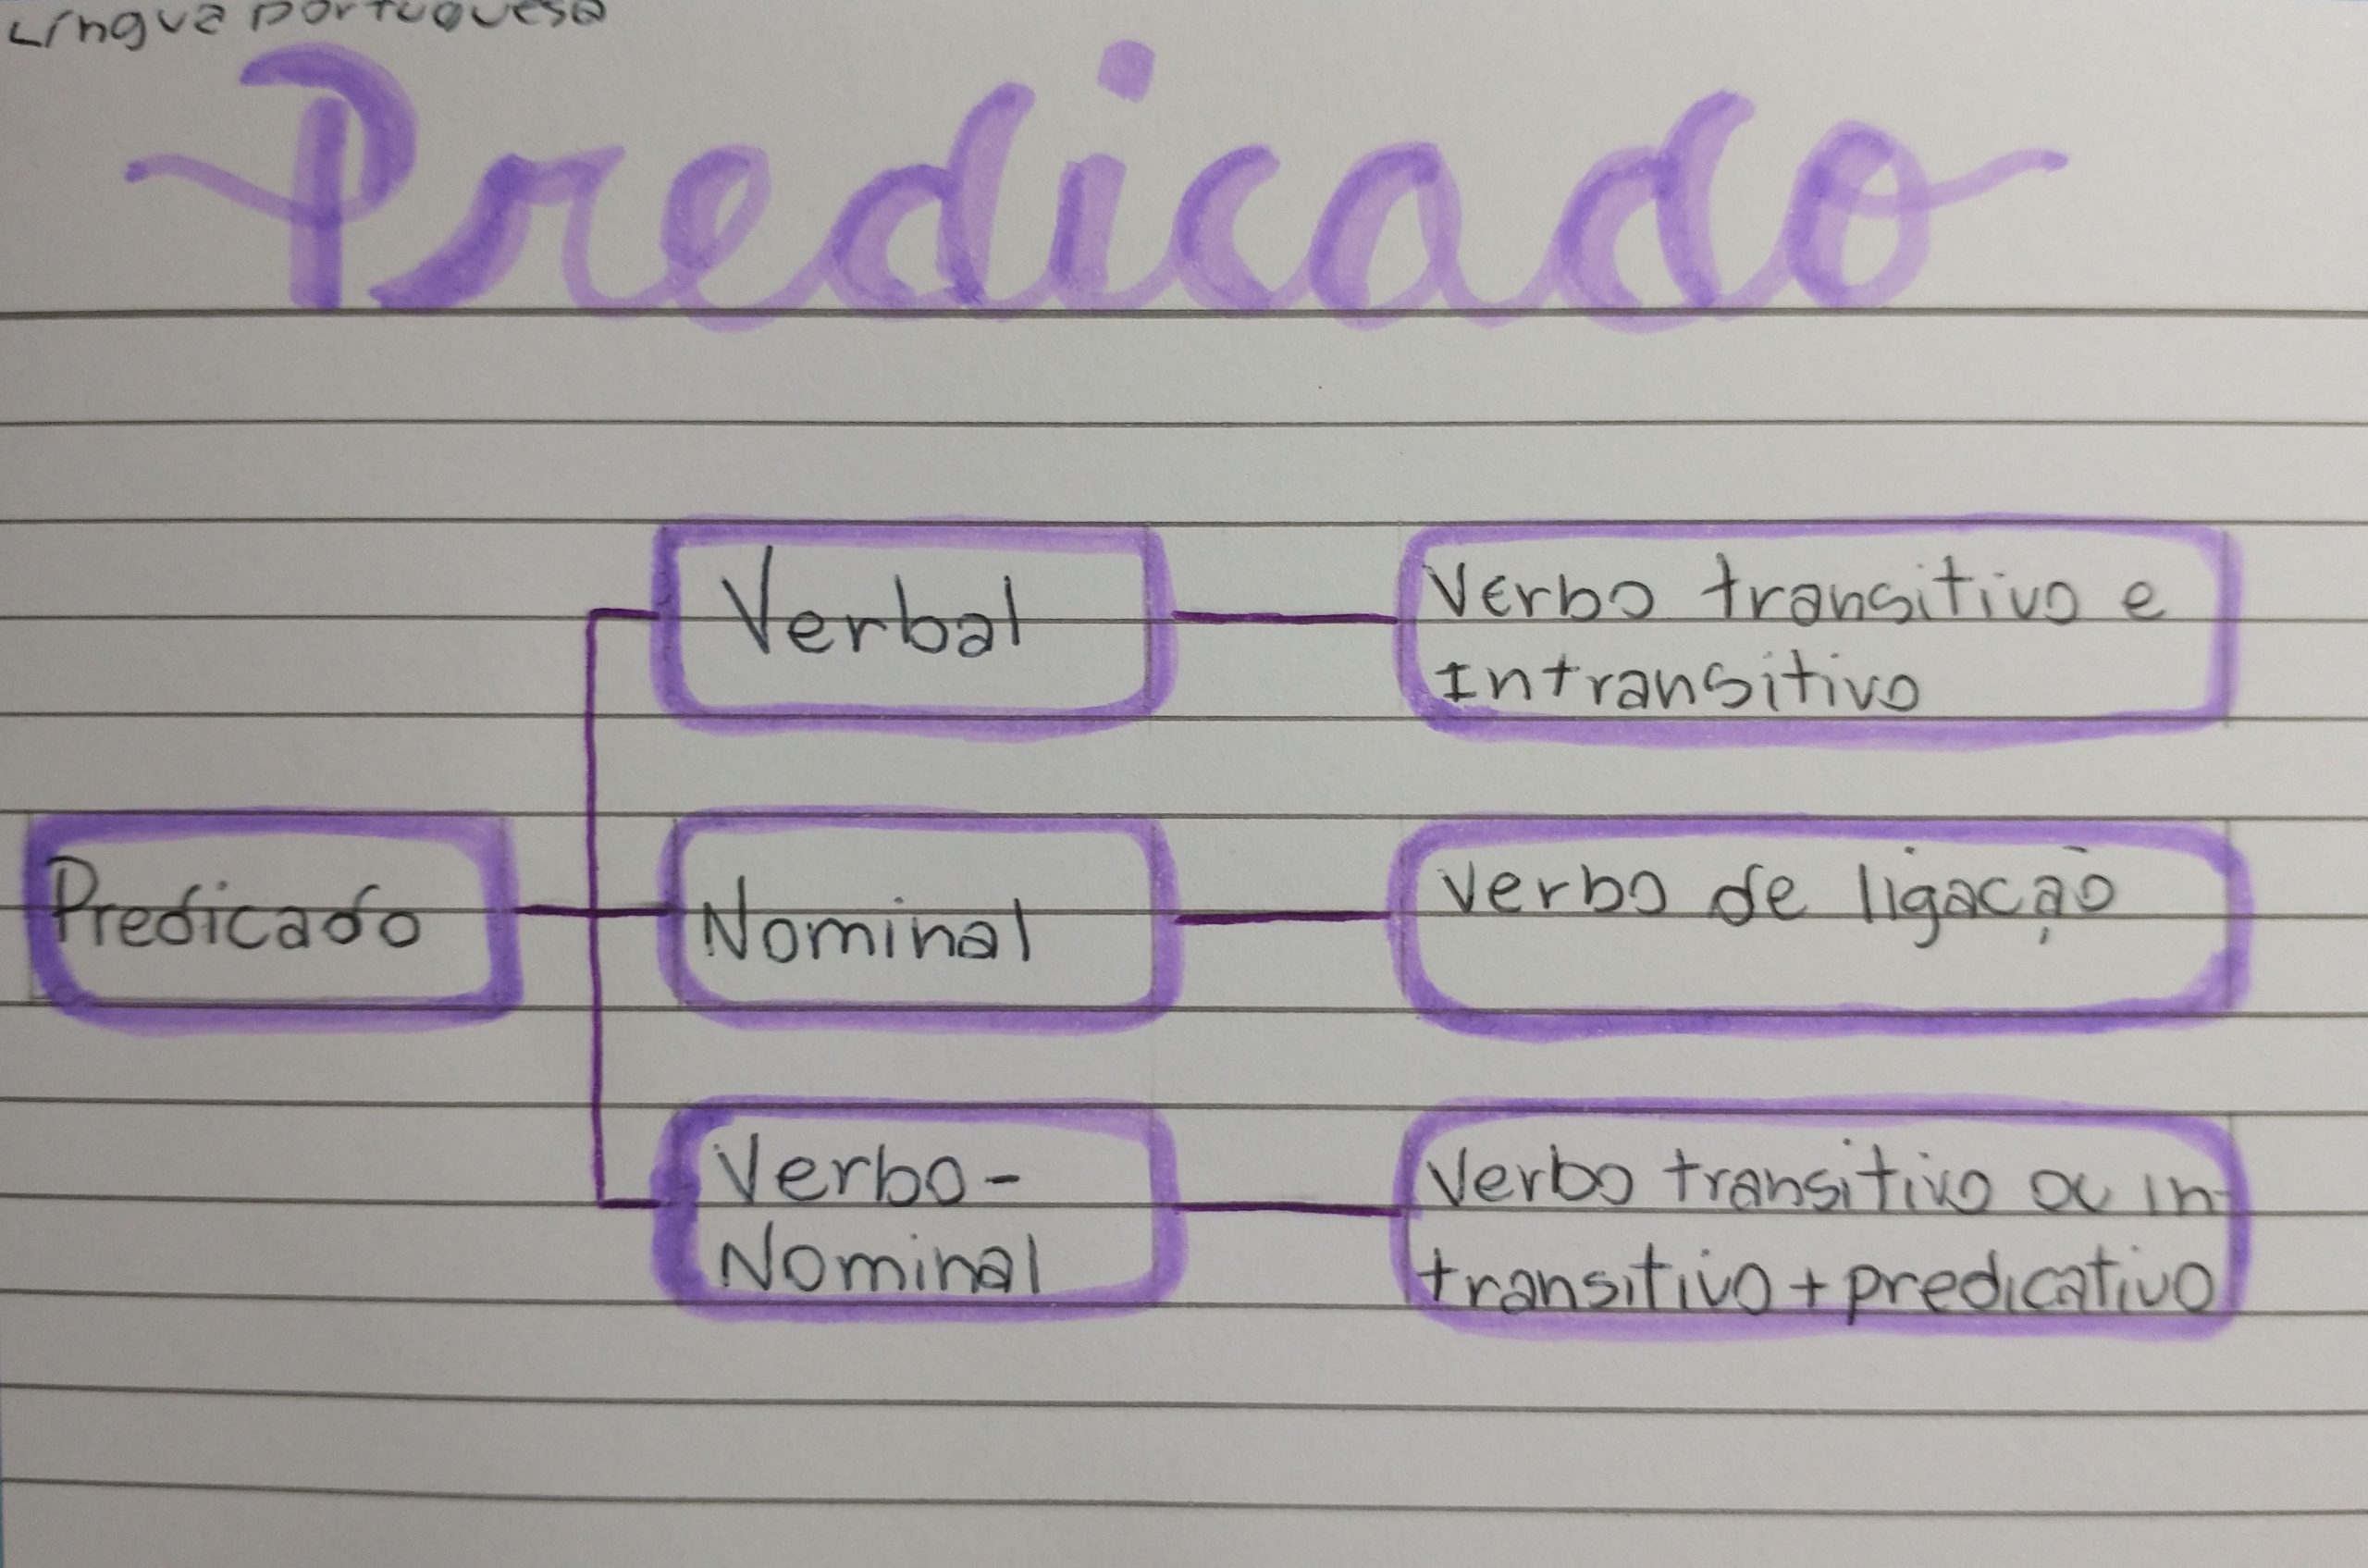 Língua portuguesa
Predicado
Verbal
Verbo transitivo e
Intransitivo
Predicado
Nominal
Verbo de ligação
Verbo-
Nominal
Verbo transitivo ou in-
transitivo + predicativo